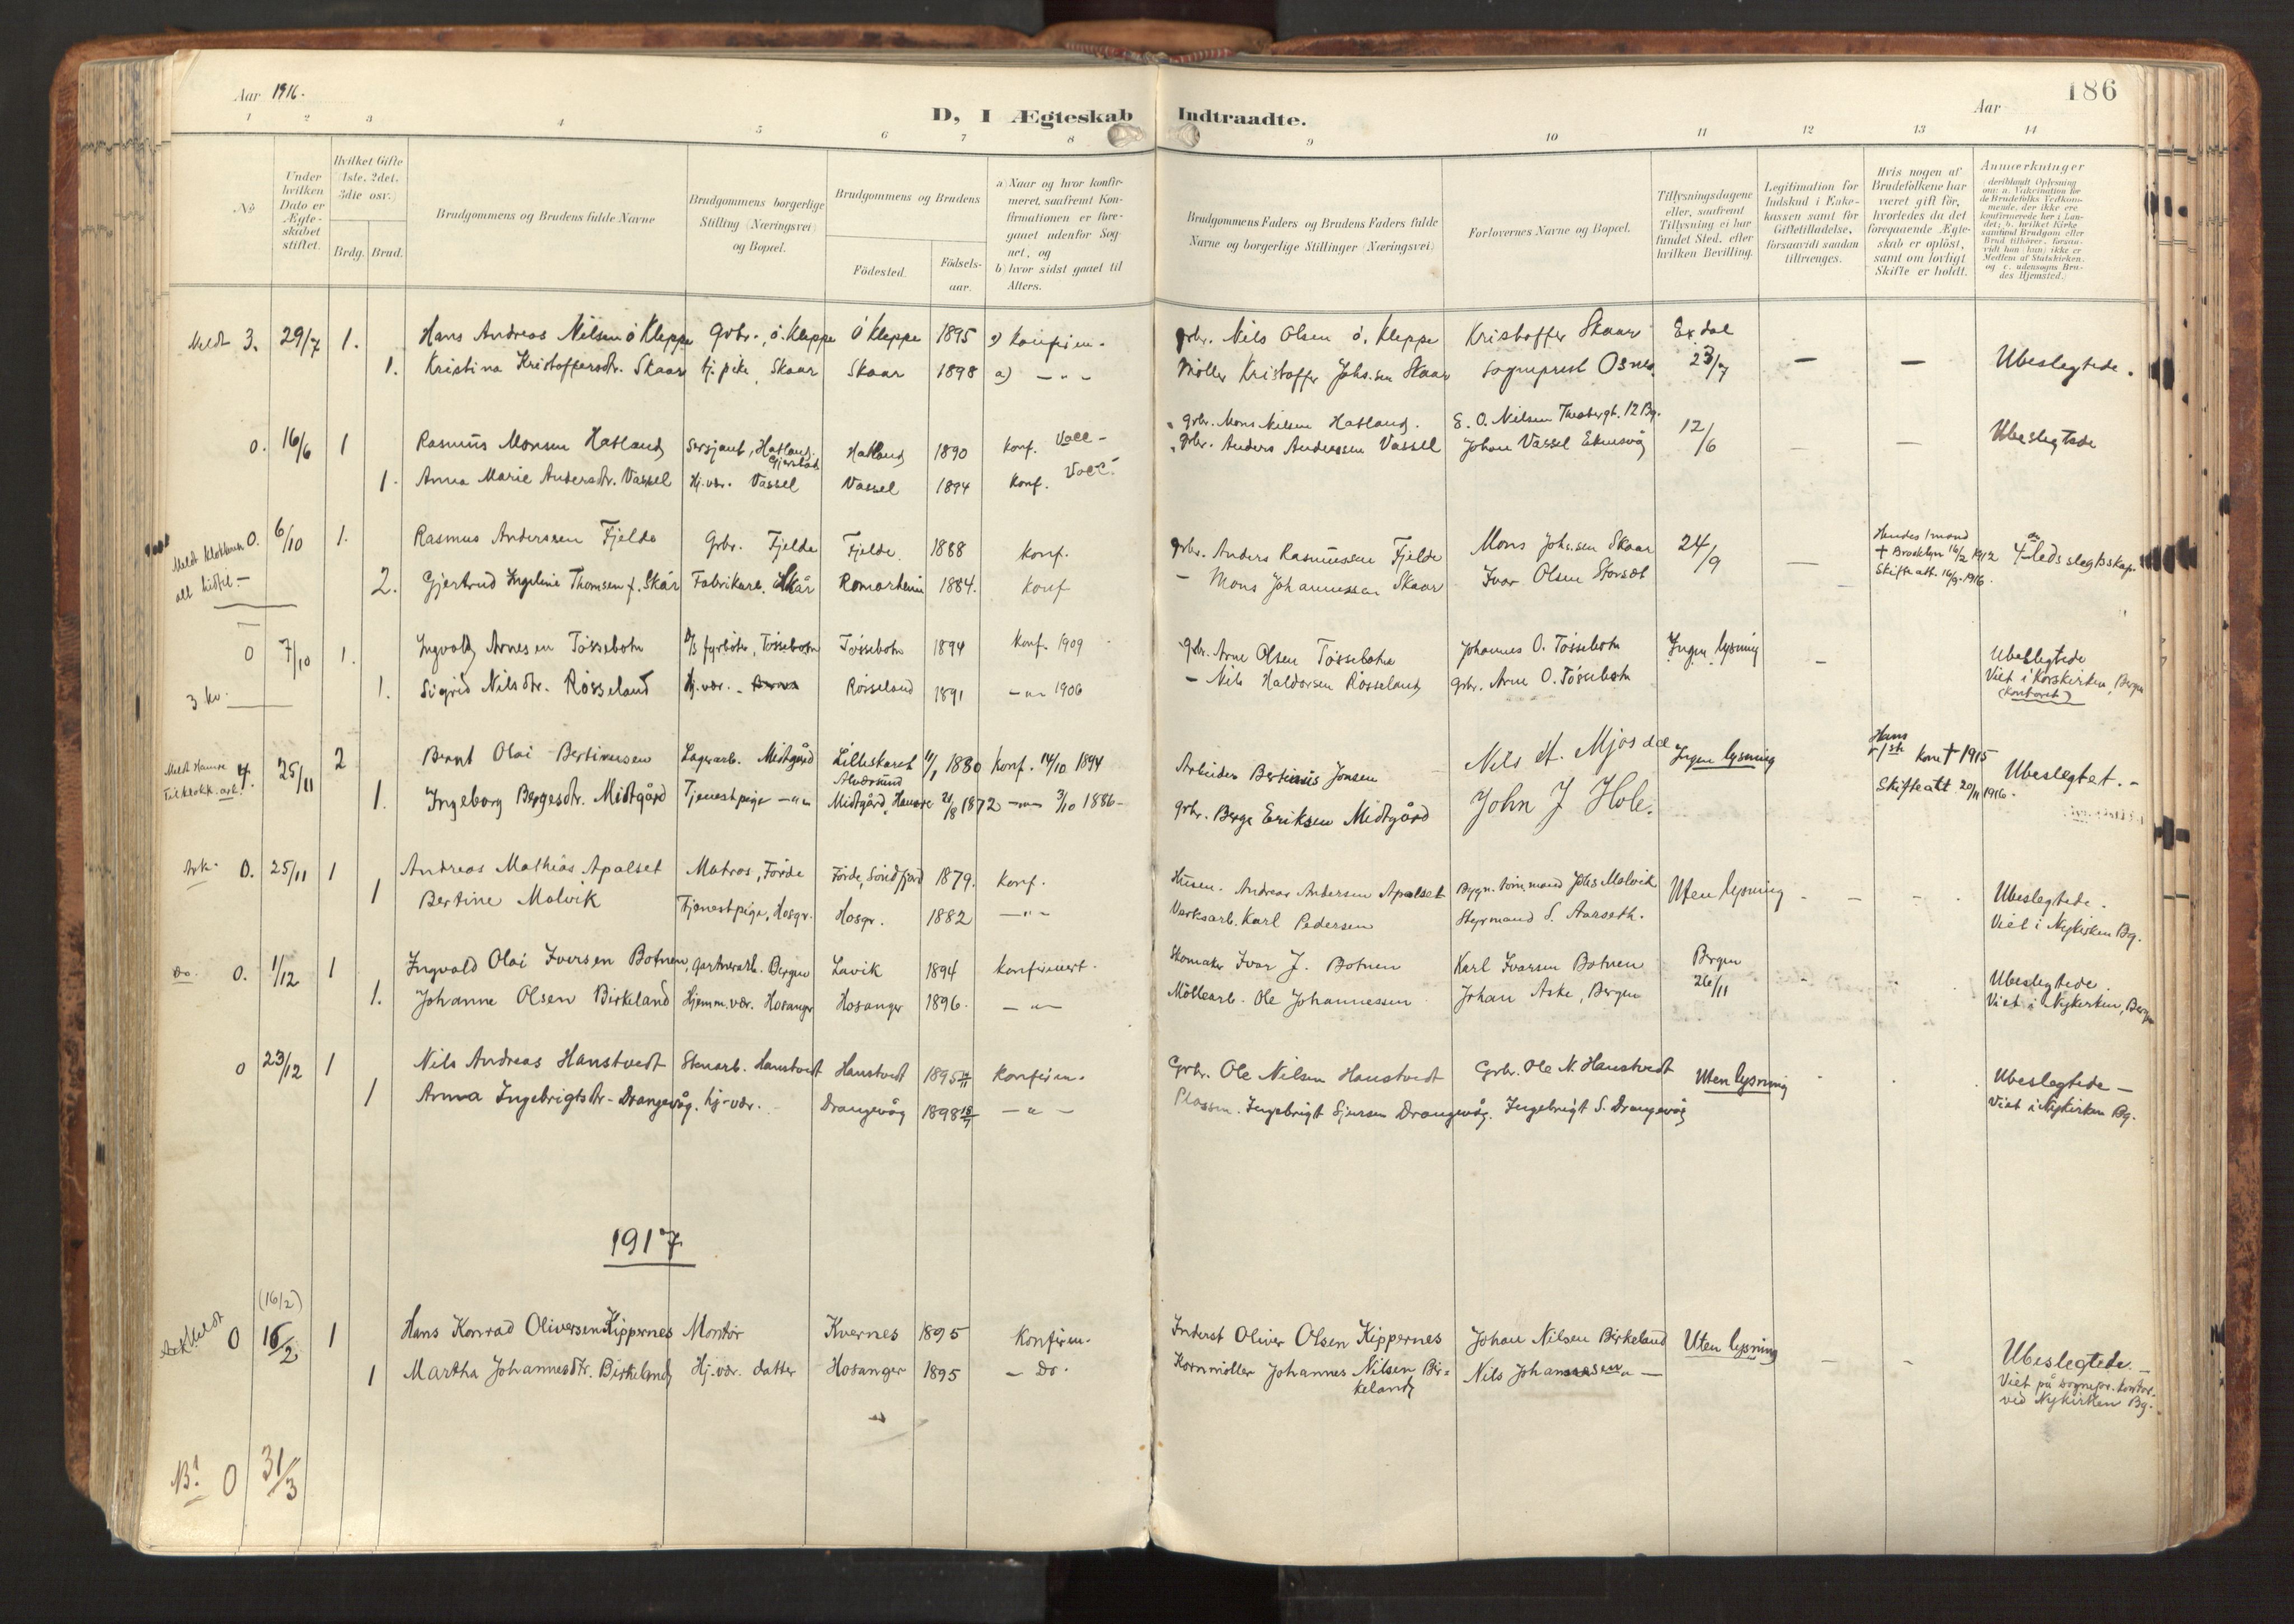 Aar 1916.
D, I Ægteskab Indtraadte.
Aar
186
1 2 3 4 5 6 7 8 9 10 11 12 13 14
No
Under hvilken Dato er Ægteskabet stiftet.
Hvilket Gifte (1ste, 2det, 3die osv.)
Brdg. Brud.
Brudgommens og Brudens fulde Navne
Brudgommens borgerlige Stilling (Næringsvei) og Bopæl.
Brudgommens og Brudens
Födested.
Födsels-aar.
a) Naar og hvor konfir-
meret, saafremt Kon-
firmationen er fore-
gaaet udenfor Sog-
net, og
b) hvor sidst gaaet til
Alters.
Brudgommens Faders og Brudens Faders fulde
Navne og borgerlige Stillinger (Næringsvei)
Forlovernes Navne og Bopæl.
Tillysningsdagene
eller, saafremt
Tillysning ei har
fundet Sted, efter
hvilken Bevilling.
Legitimation for
Indskud i Enke-
kassen samt for
Giftetilladelse,
forsaavidt saadan
tiltrænges.
Hvis nogen af
Brudefolkene har
været gift för,
hvorledes da det
foregaaende Ægte-
skab er oplöst,
samt om lovligt
Skifte er holdt.
Anmærkninger
(deriblandt Oplysning
om: a. Vakcination for
de Brudefolks Vedkom-
mende, der ikke ere
konfirmerede her i Lan-
det; b. hvilket Kirke
samfund Brudgom eller
Brud tilhörer, forsaa-
vidt han (hun) ikke er
Medlem af Statskirken,
og c. udensogns Bru-
des Hjemsted.)
Meldt 3. 29/7 1. Hans Andreas Nilsen ö Kleppe Grbr., ö. Kleppe ö Kleppe 1895 a) Konfirm. grbr. Nils Olsen ö. Kleppe Kristoffer Skaar Exdal
1. Kristina Kristoffersdtr. Skaar tj. pike, Skaar Skaar 1898 a) — „ — Möller Kristoffer Johs.sen Skaar Sogneprest Osnes. 23/7 — — Ubeslegtede.
0. 16/6 1 Rasmus Monsen Hatland Sersjant, Hatland, Gjerstad Hatland 1890 konf. Vacc — grbr. Mons Nilsen Hatland. E. O. Nilsen Theatergt. 12 Bg. 12/6 — — Ubeslegtede
1. Anna Marie Andersdtr. Vassel Hj. vær. Vassel Vassel 1894 Konf. Vacc. grbr. Anders Anderssen Vassel Johan Vassel Eknesvåg
Meldt Klokkeren 0. 6/10 1. Rasmus Anderssen Fjelde Grbr. Fjelde Fjelde 1888 Konf. grbr. Anders Rasmussen Fjelde Mons Johs.sen Skaar 24/9 — Hendes 1 mand
† Brooklyn 16/2 1912
Skifteatt. 16/9. 1916. 4de Leds slegtskap.
alt hidtil —
2. Gjertrud Ingeline Thomsen f. Skår Fabrikarb. Skår Romarheim 1884. Konf — Mons Johannessen Skaar Ivar Olsen Storset
0 7/10 1. Ingvald Arnesen Tössebotn D/S fyrböter, Tössebotn Tössebotn 1894 Konf. 1909 grbr. Arne Olsen Tössebotn Johannes O. Tössebotn Ingen lysning — Ubeslegtede
Viet i Korskirken, Bergen
(Kontoret)
3 kv. 1. Sigrid Nilsdtr. Rösseland Hj. vær. Rösseland 1891 — „ — 1906 — Nils Haldorsen Rösseland grbr. Arne O. Tössebotn
4. 25/11 2 Bernt Olai Bertinussen Lagerarb. Midtgård Lilleskaret Alversund 1880 Konf. 14/10 1894 Arbeider Bertinius Jonsen Nils M. Mjösdal Ingen lysning Hans
1ste kone † 1915
Skifteatt 20/11 1916. Ubeslegtet. —
1. Ingeborg Bergesdtr. Midtgård Tjenestpige — „ — Midtgård, Hamre 21/8 1872 — „ — 3/10 1886 — grbr. Berge Eriksen Midtgård John J Hole.
Ark. 0. 25/11 1 Andreas Mathias Apalset Matros, Förde Förde, Söndfjord 1879. Konf. Husm. Andreas Andersen Apalset Bygn. tömmermand Johs Molvik Uten lysning - - - Ubeslegtede.
1 Bertine Molvik Tjenestpige, Hosgr. Hosgr. 1882 — „ — Verksarb. Karl Pedersen Styrmand S. Aarseth. Viet i Nykirken Bg.
Do. 0. 1/12 1 Ingvald Olai Iversen Botnen, Gartnerarb. Bergen Lavik 1894 Konfirmert. Skomaker Ivar J. Botnen Karl Ivarsen Botnen Bergen
26/11 Ubeslegtede.
1. Johanne Olsen Birkeland Hjemm. vær. Hosanger Hosanger 1896. — „ — Möllearb. Ole Johannessen Johan Aske, Bergen Viet i Nykirken, Bergen
0 23/12 1 Nils Andreas Hanstvedt Stenarb. Hanstvedt Hanstvedt 1895 Konfirm. Grbr. Ole Nilsen Hanstvedt Grbr. Ole N. Hanstvedt Uten lysning Ubeslegtede —
1 Anna Ingebrigtsdtr. Drangevåg. hj. vær. Drangevåg 1898 — „ — Plassm. Ingebrigt Sjursen Drangevåg. Ingebrigt S. Drangevåg Viet i Nykirken Bg.
1917
(16/2)
Meldt Ark 0 16/2 1 Hans Konrad Oliversen Kippernes Montör Kvernes 1895 Konfirm. Inderst Oliver Olsen Kippernes Johan Nilsen Birkeland Uten lysning — - Ubeslegtede. —
1 Martha Johannesdtr. Birkeland Hj. vær. datter Hosanger 1895 — Do. Kornmöller Johannes Nilsen Bir=
keland Nils Johannesen — „ — Viet på sognepr. kontor.
ved Nykirken Bg.
N.B! 0 31/3